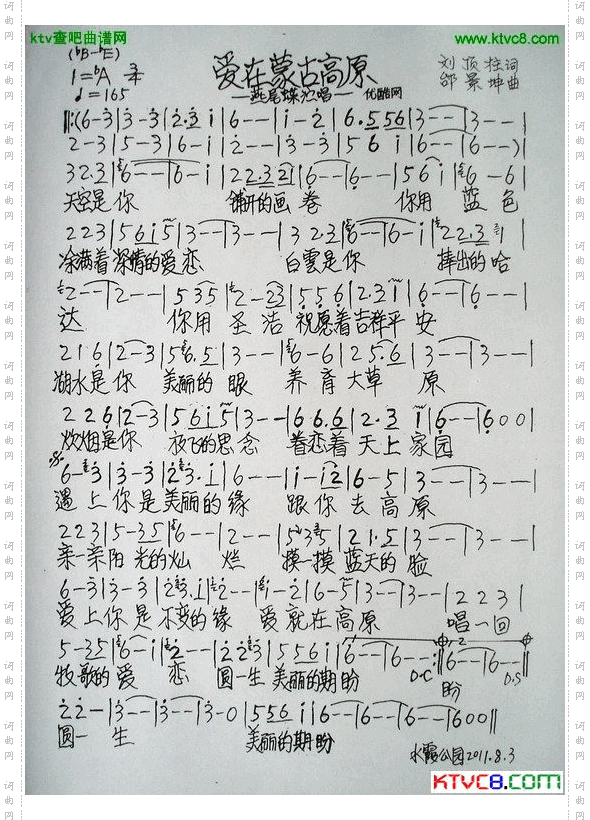 ktv查吧曲谱网
www.ktvc8.com
(bB-bE)
1=bA 3/4
♩=165
爱在蒙古高原
—燕尾蝶演唱— 优酷网
刘顶柱词
邰景坤曲
‖:(6-3|3-3|2·3 1|6--|1-2|6·556|3--|3--|
2-3|5-3|6-1|2--|3-3|5 6 1|6--|6--)|
32·3|6--|6-1|22·32|6--|6--|5 6 1|6-6|
天空是你 铺开的画卷 你用 蓝色
2 2 3|5 6 1 5|3--|3--|3 2·3|6--|6-1|22·3 1|
涂满着深情的爱恋 白雲是你 捧出的哈
2--|2--|5 3 5|2-23|5·5 6|2·3 1|6--|6--|
达 你用圣洁祝愿着吉祥平安
2 1 6|2-3|5 6·5|3--|6-6|2 5·6|3--|3--|
湖水是你 美丽的眼 养育大草原
2 2 6|2-3|5 6 1 5|3--|6 6·6|2·3 1|6--|6 0 0|
炊烟是你 放飞的思念 眷恋着天上家园
6-3|3-3|2 3·1|6--|1-1 2|6-5|3--|3--|
遇上你是美丽的缘 跟你去高原
2 2 3|5-35|6--|2--|5 3 5|2 1·5|3--|3--|
亲一亲阳光的灿烂 摸一摸蓝天的脸
6-3|3-3|2 3·1|2--|1-2|6-5|3--|3--|2 2 3|
爱上你是不变的缘 爱就在高原 唱一回
5-35|6-1|2--|2 2 3|5 5 6 1|6--|6--:‖6--|6--‖
牧歌的爱恋 圆一生美丽的期盼 D.C 盼 D.S
2 2-|3--|3--|3-0|5 5 6 1|6--|6--|6--|6 0 0‖
圆一生 美丽的期盼
水霞公园2011.8.3
KTVC8.com
词曲网